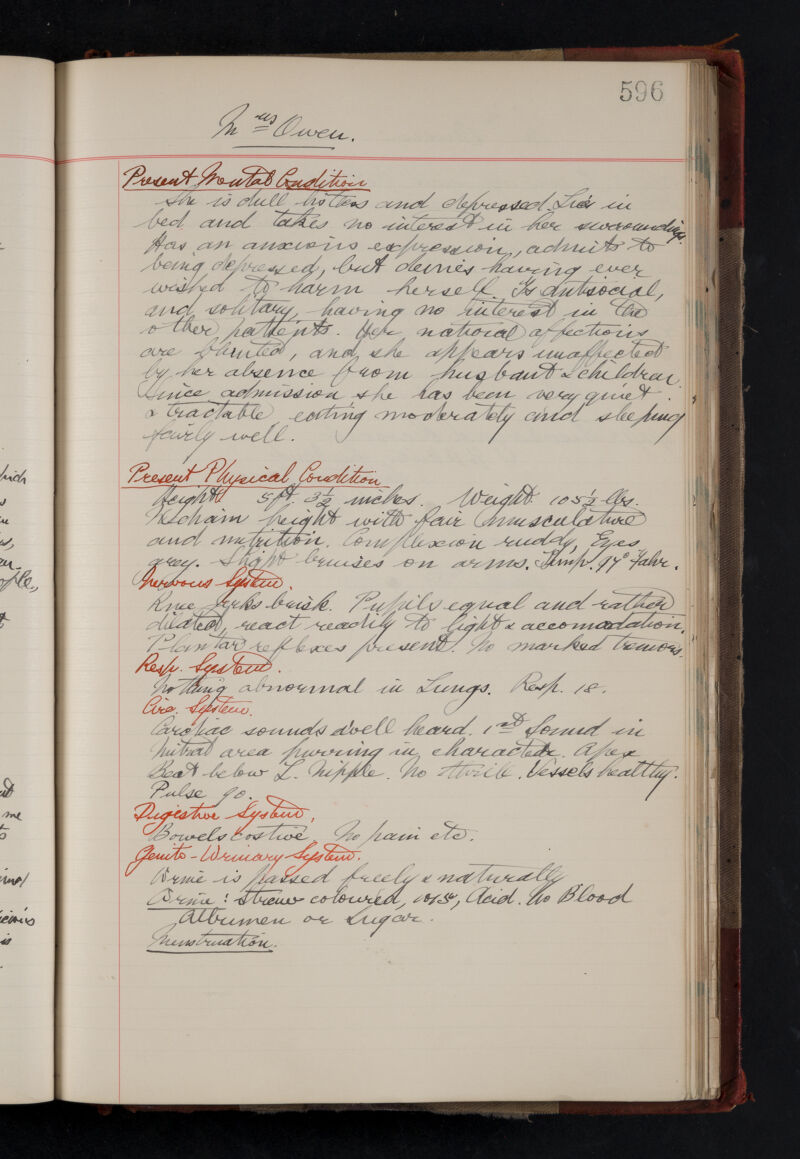 596
Mrs Owen.
Present Mental Condition
She is dull listless and depressed. Lies in
bed and takes no interest in her surroundings.
Has an anxious expression, admits to
being depressed, but denies having ever
wished to harm herself. Is antisocial,
and solitary, having no interest in the
other patients. Her natural affections
are blunted, and she appears unaffected
by her absence from husband & children.
Since admission she has been very quiet
& tractable eating moderately and sleeping
fairly well.
Present Physical Condition
Height 5 ft 3½ inches. Weight 105½ lbs.
Medium height with fair musculature
and nutrition. Complexion ruddy, Eyes
grey. Slight bruises on arms. Temp. 97° Fahr.
Nervous System.
Knee jerks brisk. Pupils equal and rather
dilated, react readily to light & accomodation.
Plantar reflexes present. No marked tremors.
Resp. System.
Nothing abnormal in Lungs. Resp. 18.
Circ. System.
Cardiac sounds well heard. 1st Sound in
Mitral area purring in character. Apex
Beat below L. Nipple. No thrill. Vessels healthy.
Pulse 90.
Digestive System,
Bowels costive. No pain etc.
Genito-Urinary System.
Urine is passed freely & naturally
Urine: straw coloured, 1015, Acid. No Blood
Albumen or Sugar.
Menstruation.